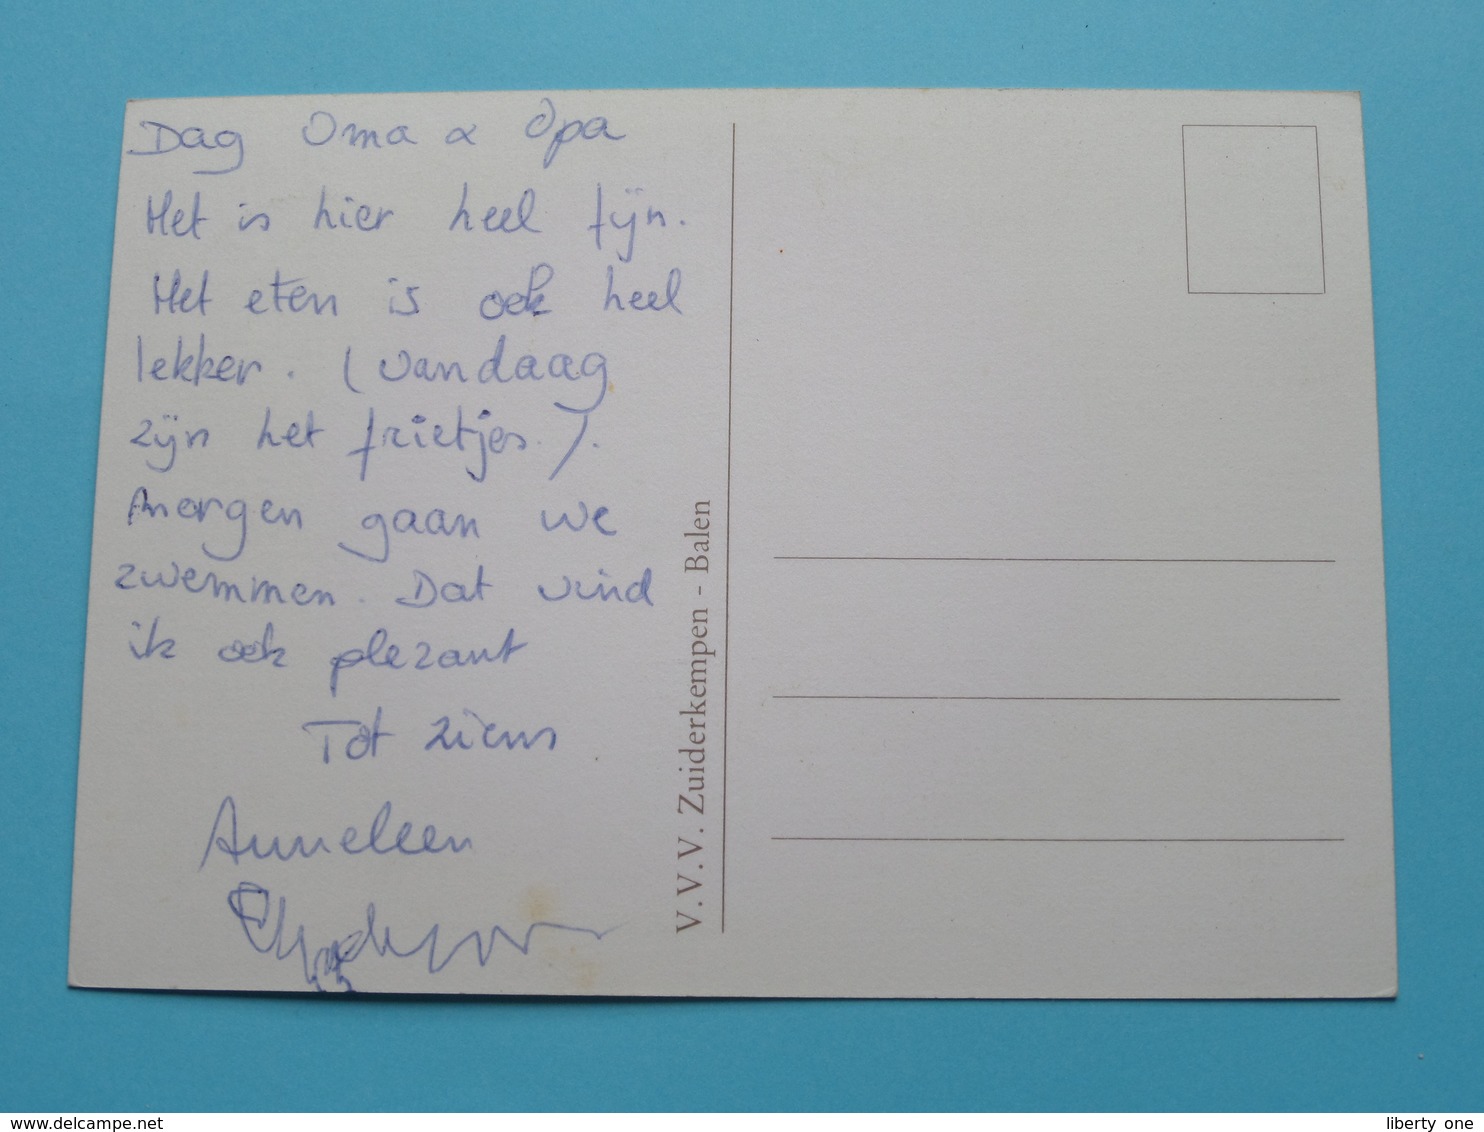 Dag Oma & Opa
Het is hier heel fijn.
Het eten is ook heel
lekker. (vandaag
zijn het frietjes.).
morgen gaan we
zwemmen. Dat vind
ik ook plezant
Tot ziens
Anneleen
V.V.V. Zuiderkempen - Balen
www.delcampe.net
liberty one